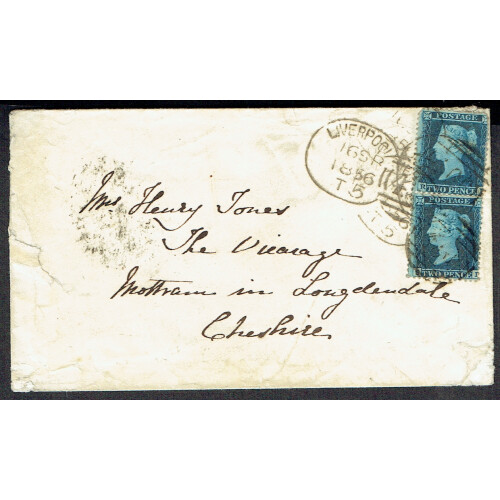 POSTAGE
TWO PENCE
POSTAGE
TWO PENCE
LIVERPOOL
16 SP
1856
T 5
T 5
Mrs Henry Jones
The Vicarage
Mottram in Longdendale
Cheshire